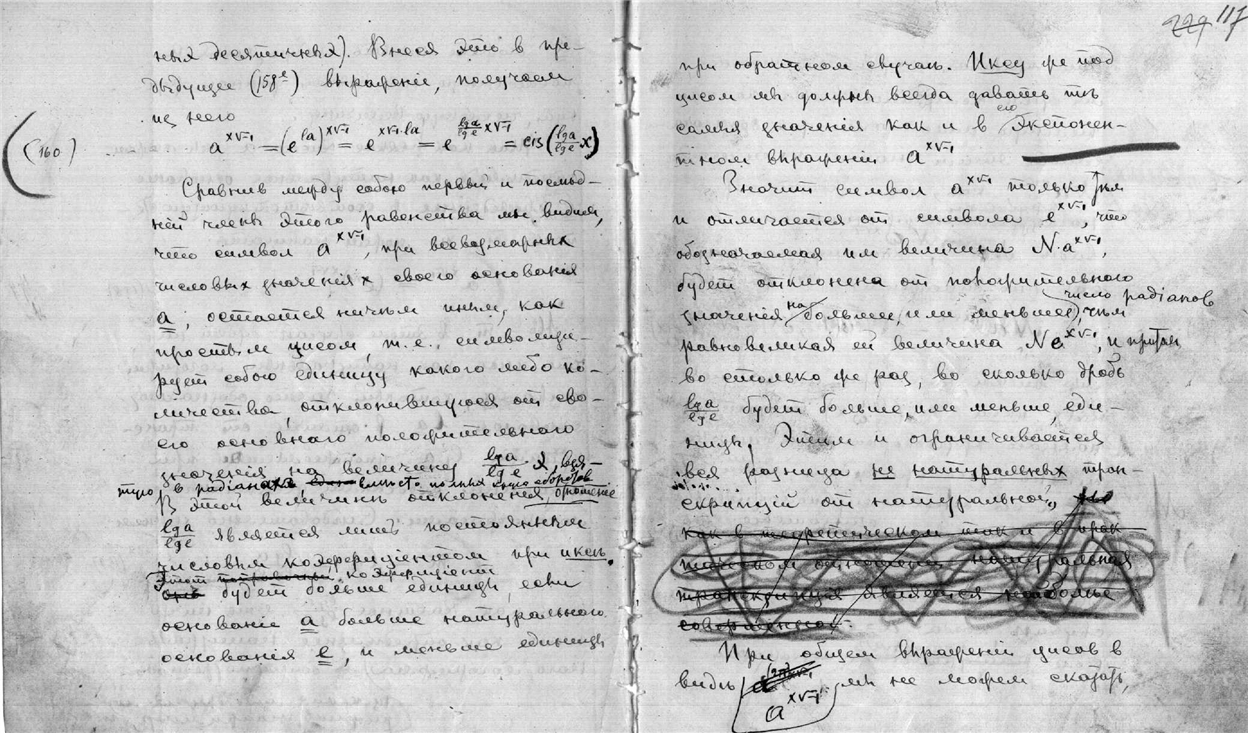 ныя десятичныя). Внеся это в пре-
дыдущее (158е) выраженіе, получаем
из него
(160) a^{x√-1} = (e^{la})^{x√-1} = e^{x√-1·la} = e^{\frac{lg a}{lg e} x√-1} = cis(\frac{lg a}{lg e} x)
Сравнив между собою первый и послѣд-
ній члены этого равенства мы видим,
что символ a^{x√-1}, при всевозможных
числовых значеніях своего основанія
a, остается ничѣм иным, как
простым цисом, т.е. символизи-
рует собою единицу какого либо ко-
личества, отклонившуюся от сво-
его основного положительного
значенія на величину \frac{lg a}{lg e} x, взя-
тую в радіанах вместо полных
В этой величинѣ отклоненія, отношеніе
\frac{lg a}{lg e} является лишь постоянным
числовым коэффиціентом при иксѣ.
Этот коэффиціент
будет больше единицы, если
основаніе a больше натурального
основанія e, и меньше единицы
229 117
при обратном случаѣ. Иксу же под
цисом мы должны всегда давать тѣ
самыя значенія как и в его экспонен-
тном выраженіи a^{x√-1}
Значит символ a^{x√-1} только тѣм
и отличается от символа e^{x√-1}, что
обозначаемая им величина N·a^{x√-1},
будет отклонена от положительного
значенія на большее, или меньшее число радіанов, чѣм
равновеликая ей величина Ne^{x√-1}, и притом
во столько же раз, во сколько дробь
\frac{lg a}{lg e} будет больше, или меньше, еди-
ницы. Этим и ограничивается
вся разница не натуральных тран-
скрипцій от натуральной
как в теоретическом так и в прак-
тическом отношеніи натуральная
транскрипція является наиболѣе
совершенной.
При общем выраженіи цисов в
видѣ a^{x√-1} мы не можем сказать,